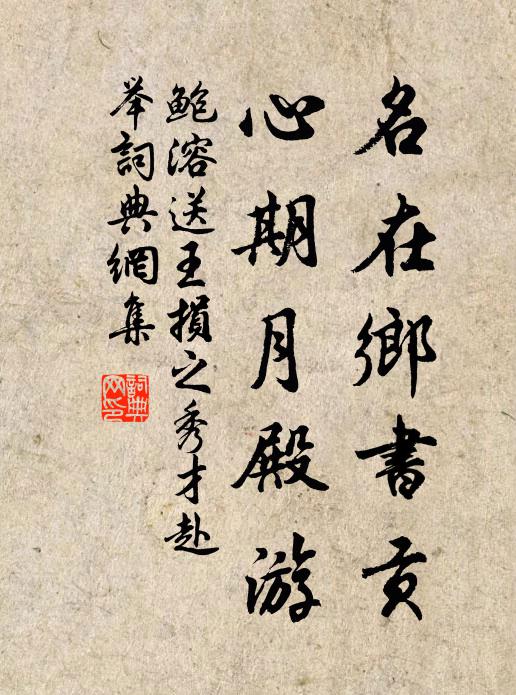 名在鄉書貢
心期月殿游
鮑溶送王損之秀才赴
举詞典網集
詞典网印